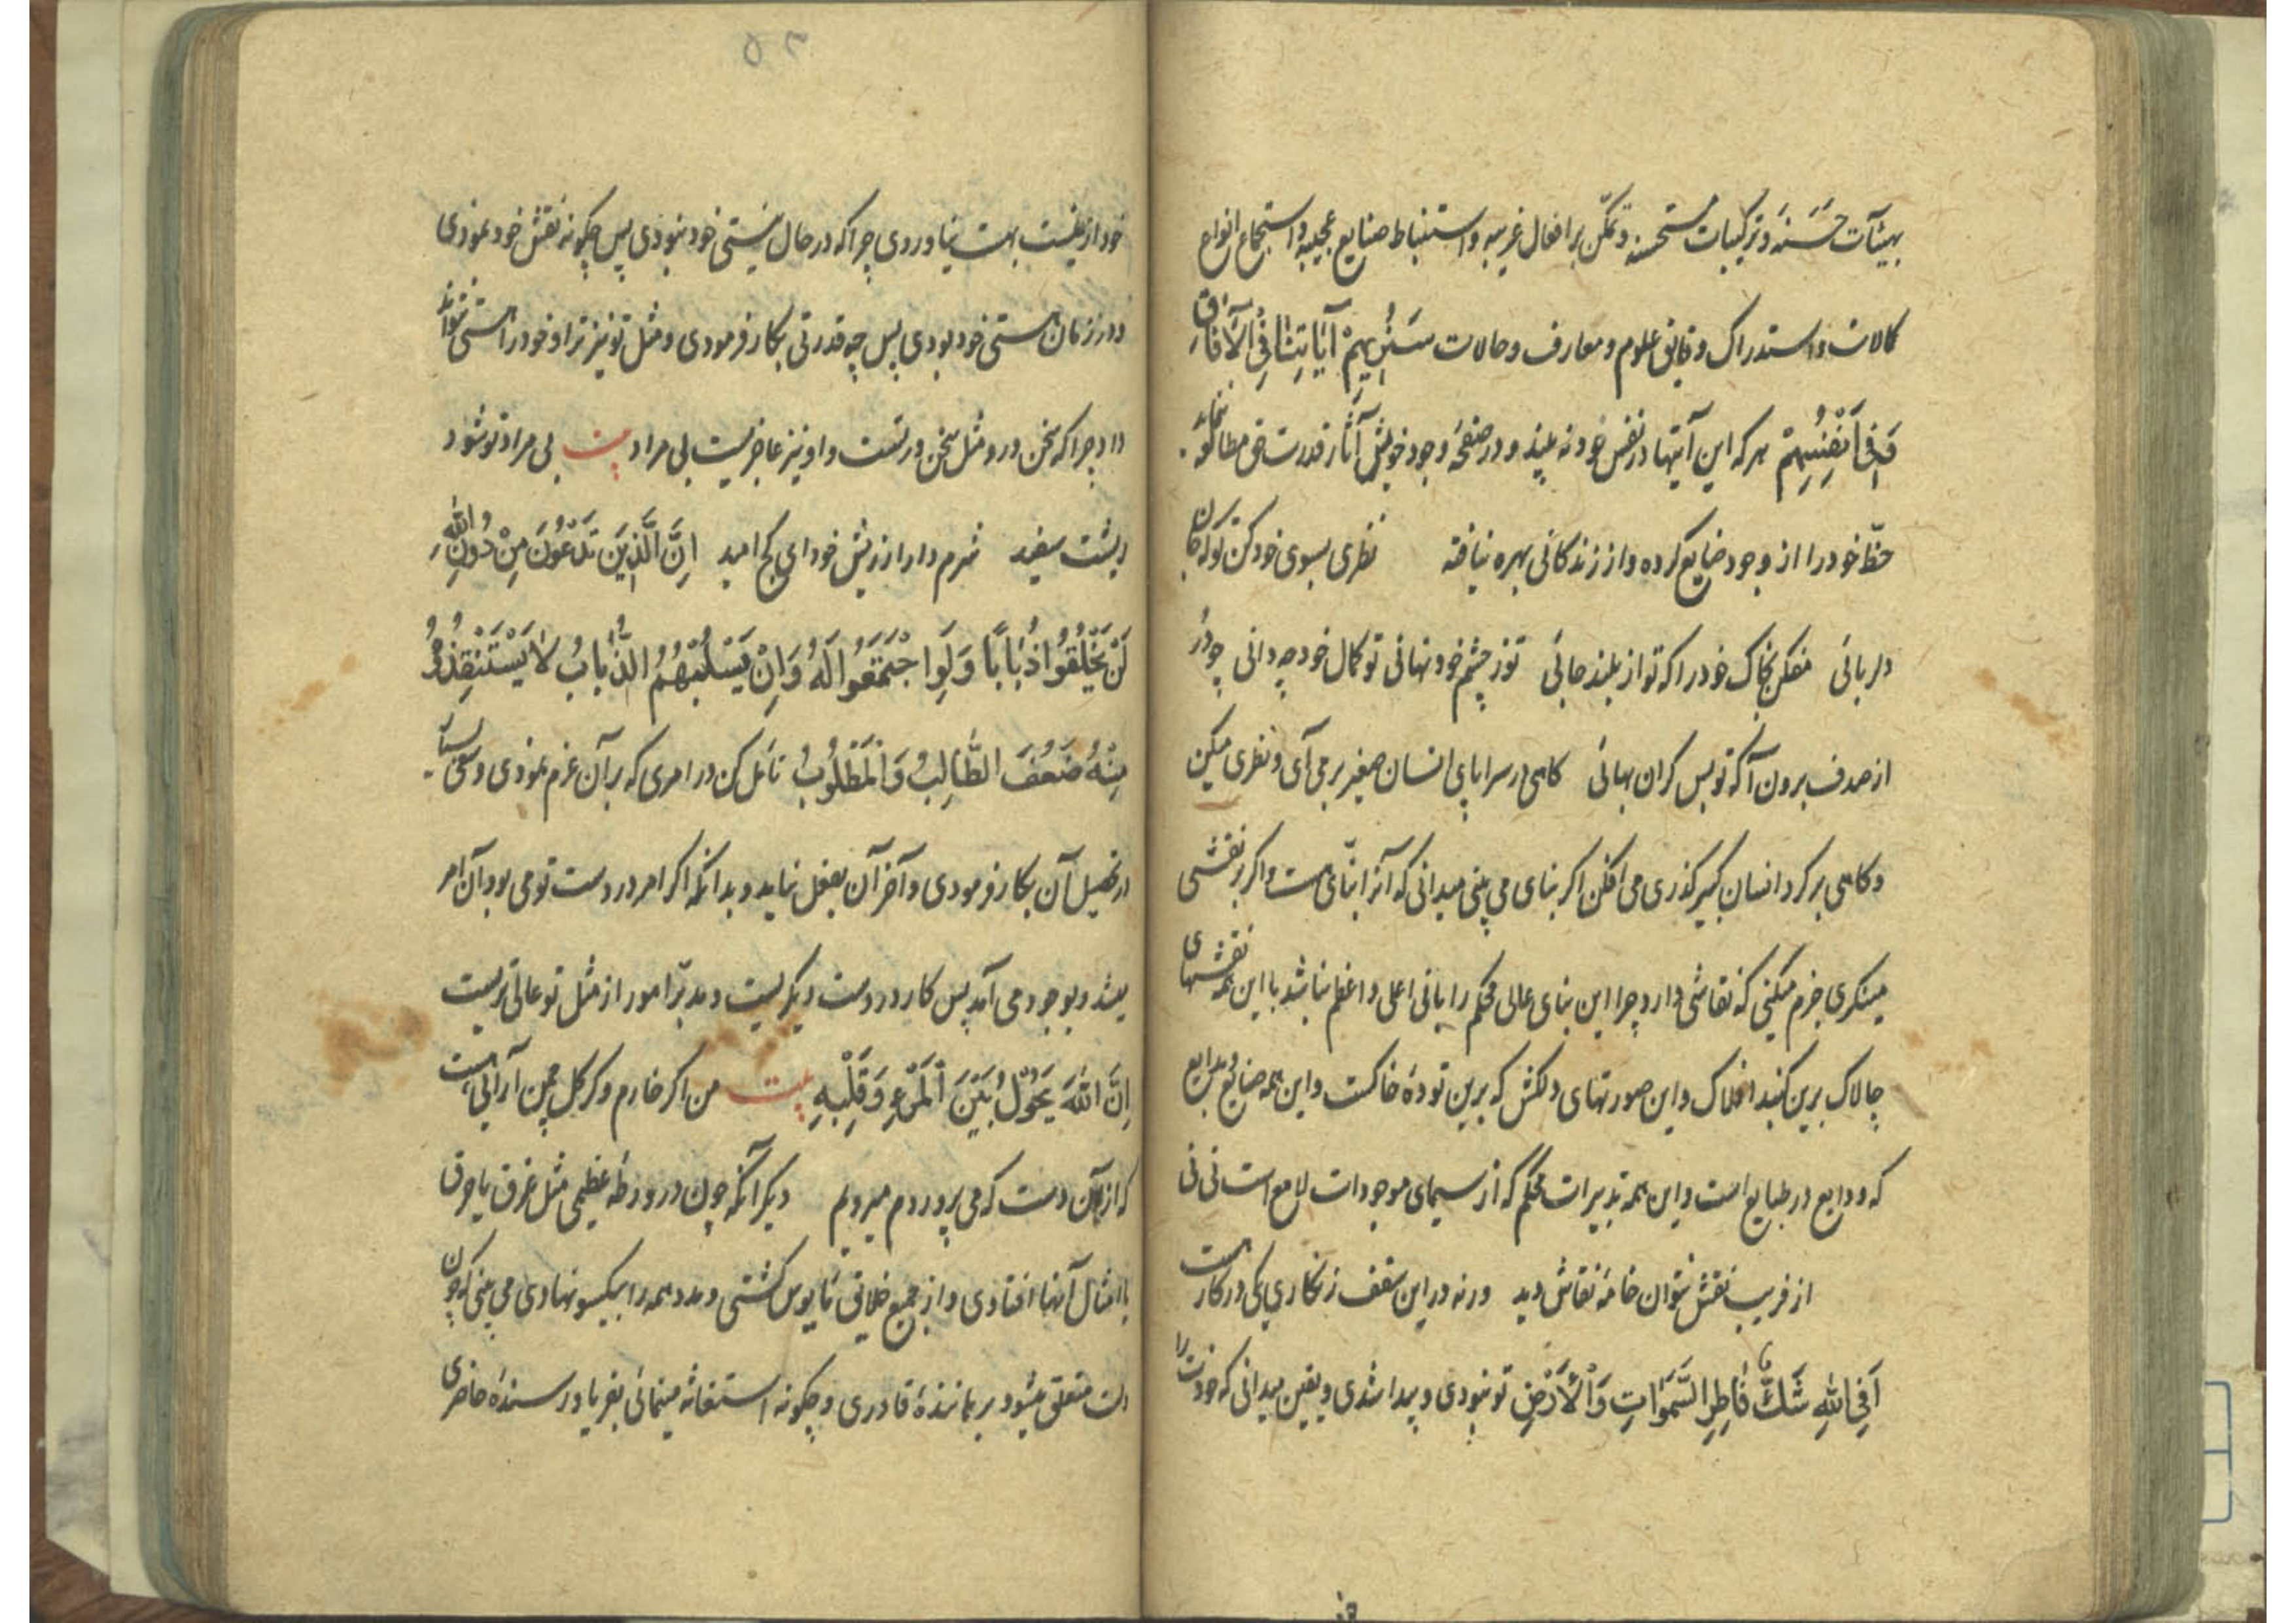 بهیئآت حَسَنَه و ترکیبات مستحسنه و تمکّن بر افعال غریبه و استنباط صنایع عجیبه و استجماع انواع
کمالات و استدراک دقایق علوم و معارف و حالات سَنُرِیهِمْ آیَاتِنَا فِی الْآفَاقِ
وَفِی اَنْفُسِهِمْ هر که این آیتها در نفس خود نه بیند و در صفحهٔ وجود خویش آثار قدرت حق مطالعه نماید
حظّ خود را از وجود ضایع کرده و از زندکانی بهره نیافته نظری بسوی خود کن که تو جان
دلربائی مفکن بخاک خود را که تو از بلند جائی تو ز چشم خود نهانی تو کمال خود چه دانی چو در
از صدف برون آ که تو بس کران بهائی کاهی در سراپای انسان صغیر بر می آی و نظری میکن
و کاهی بر کرد انسان کبیر کذری می افکن اکر بنای می بینی میدانی که آنرا بنّائی هست و اکر بر نقشی
مینکری جزم میکنی که نقاشی دارد چرا این بنای عالی محکم را بانی اعلی و اعظم نباشد با این همه نقشهای
چالاک برین کنبد افلاک و این صورتهای دلکش که برین تودهٔ خاکست و این همه صنایع و بدایع
که ودایع در طبایع است و این همه تدبیرات محکم که از سیمای موجودات لامع است نی نی
از فریب نقش نتوان خامهٔ نقاش دید ورنه در این سقف زنکاری یکی در کار هست
اَفِی اللهِ شَکٌّ فَاطِرِ السَّمَوَاتِ وَالْاَرْضِ تو نبودی و پیدا شدی و یقین میدانی که خودت را
۵۲
خود از نیست بهست نیاوردی چرا که در حال نیستی خود نبودی پس چکونه نقش خود نمودی
و در زمان هستی خود بودی پس چه قدرتی بکار فرمودی و مثل تو نیز ترا و خود را هستی نتواند
داد چرا که سخن درو مثل سخن در تست و او نیز عاجزیست بی مراد بیت بی مراد تو شود
ریشت سفید شرم دار از ریش خود ای کج امید اِنَّ الَّذِینَ تَدْعُونَ مِنْ دُونِ اللهِ
لَنْ یَخْلُقُوا ذُبَابًا وَلَوِ اجْتَمَعُوا لَهُ وَاِنْ یَسْلُبْهُمُ الذُّبَابُ لَا یَسْتَنْقِذُوهُ
مِنْهُ ضَعُفَ الطَّالِبُ وَالْمَطْلُوبُ تأمل کن در امری که بر آن عزم نمودی و سعی بسیار
در تحصیل آن بکار فرمودی و آخر آن بفعل نیاید و بدانکه اکر امر در دست تو می بود آن امر
میشد و بوجود می آمد پس کار در دست دیکریست و مدبّر امور از مثل تو عالی تریست
اِنَّ اللهَ یَحُولُ بَیْنَ الْمَرْءِ وَقَلْبِهِ بیت من اکر خارم و کر کل چمن آرائی هست
که از آن دست که می پروردم میرویم دیکر آنکه چون در ورطهٔ عظیمی مثل غرق یا حرق
یا امثال آنها افتادی و از جمیع خلایق مأیوس کشتی و مدد همه را بیکسو نهادی می بینی که چون
دلت متعلق میشود برهانندهٔ قادری و چکونه استغاثه مینمائی بفریاد رسندهٔ حاضری